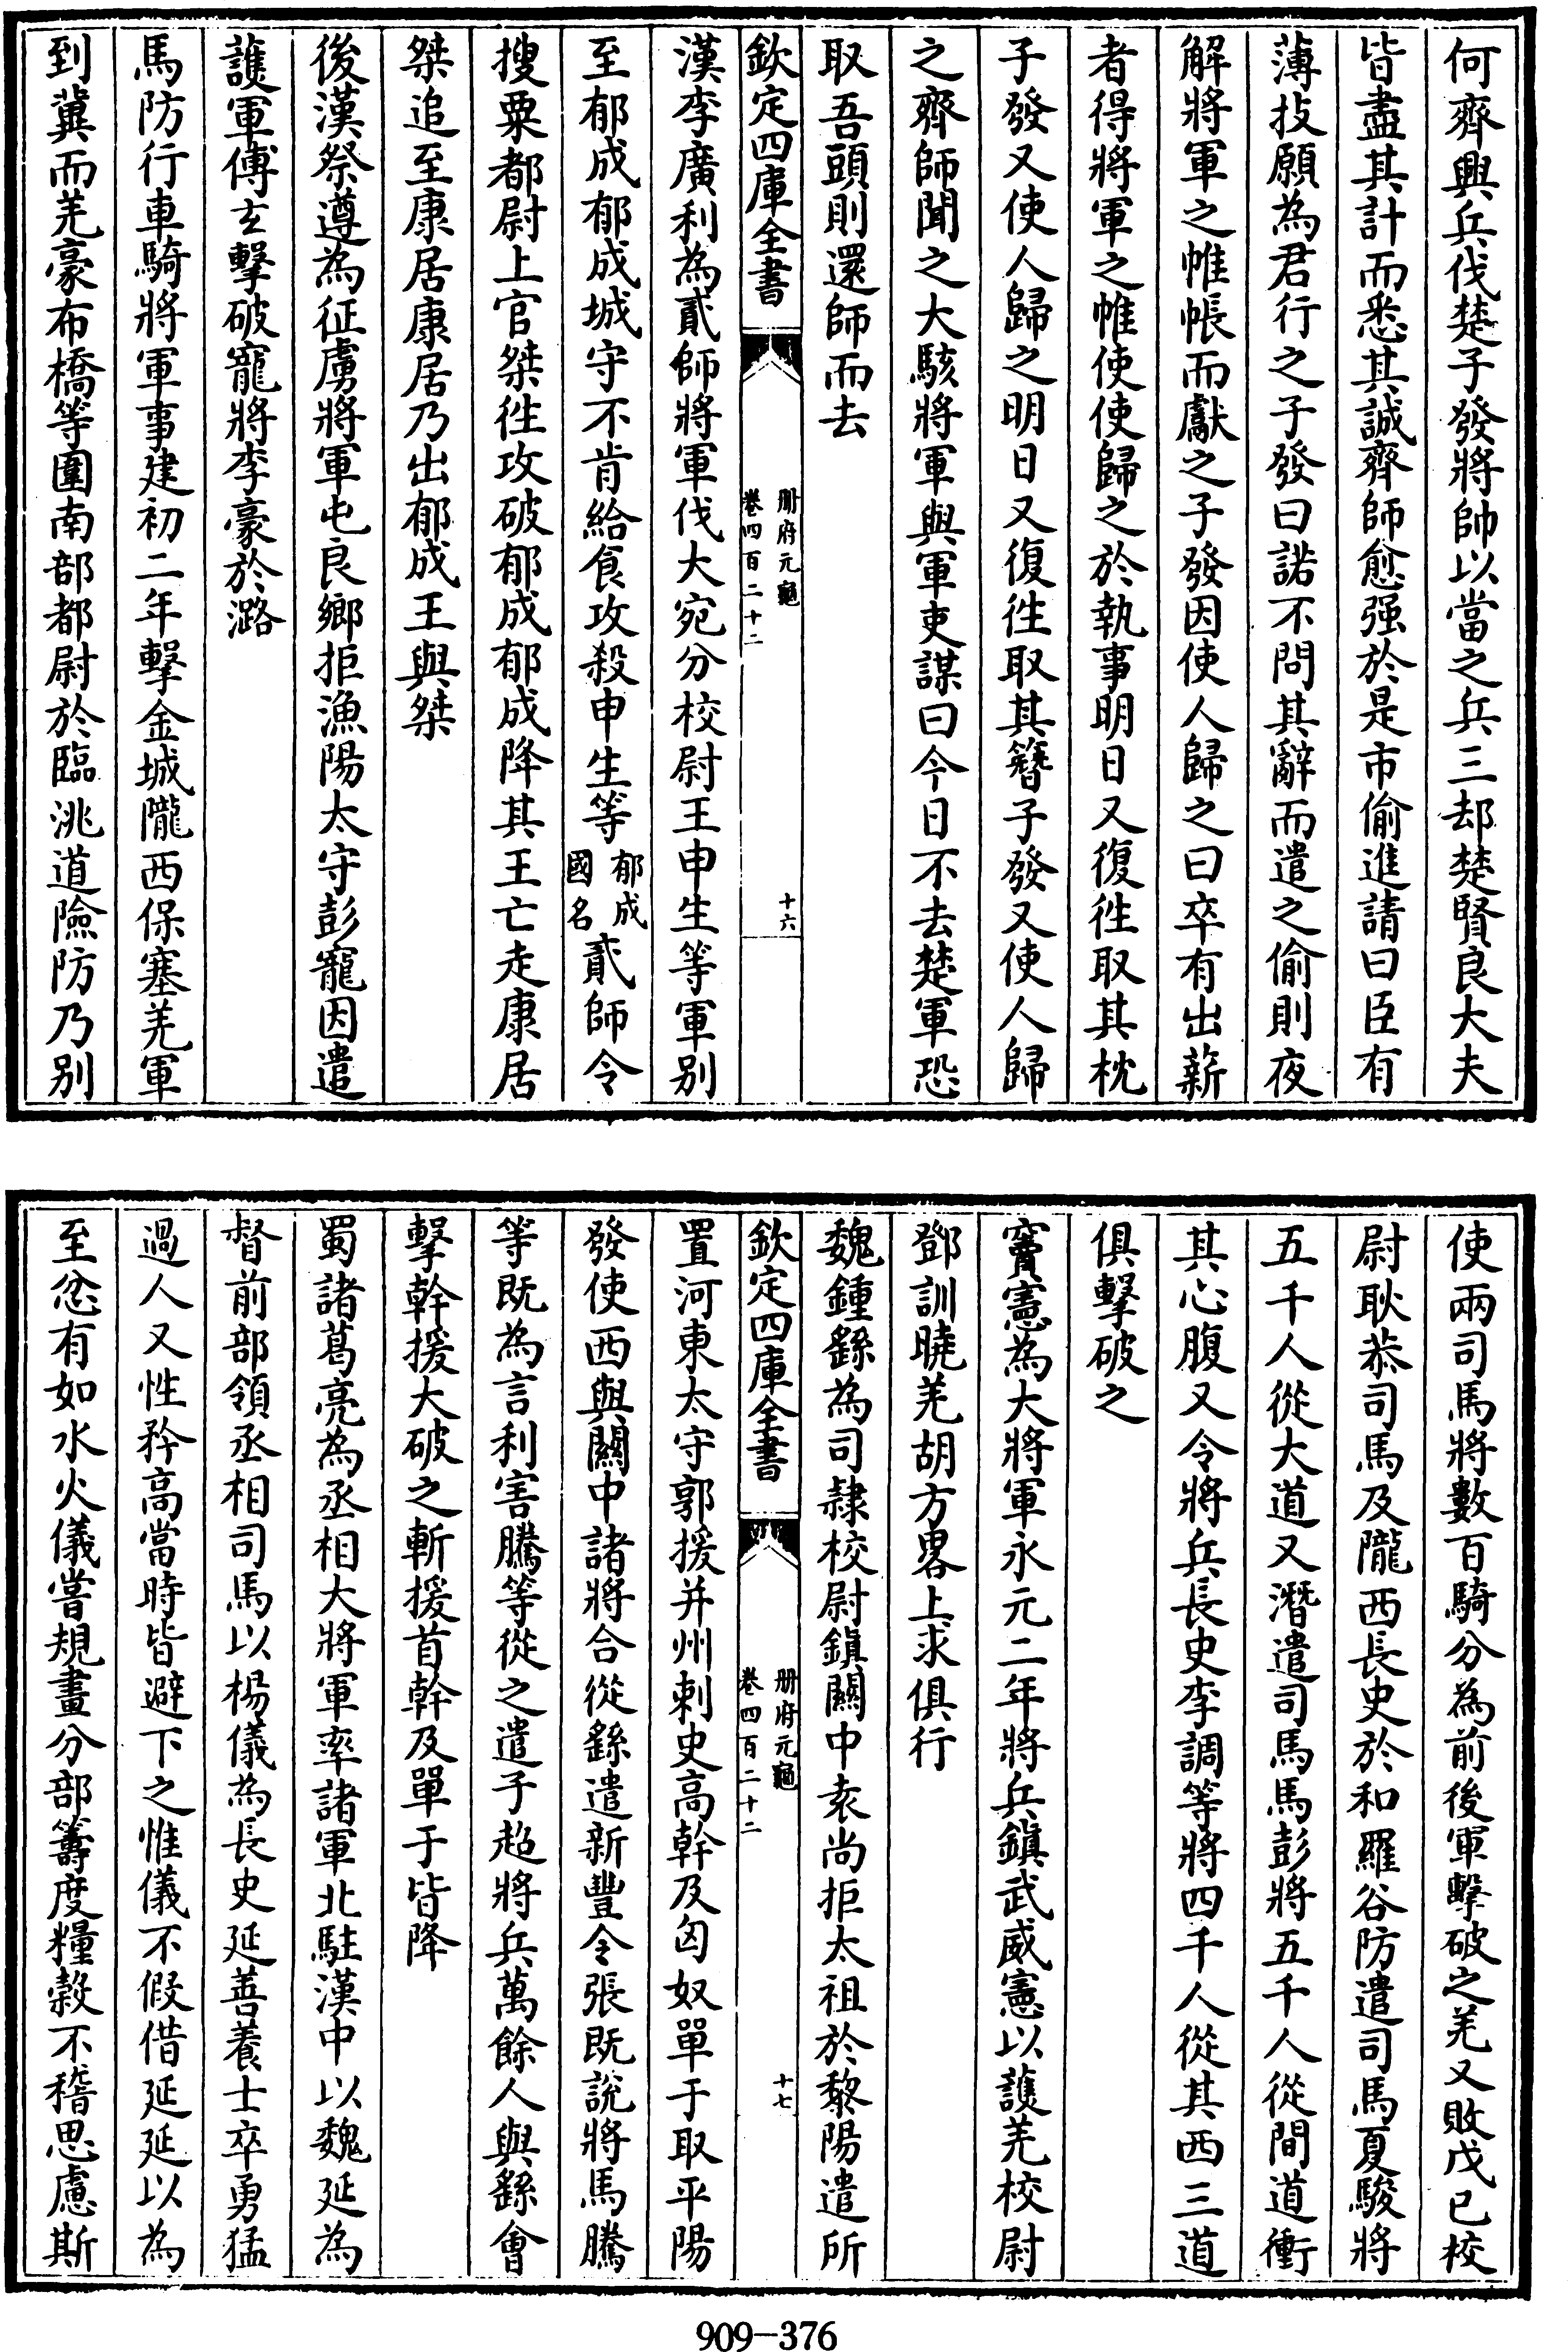 何齊興兵伐楚子發將帥以當之兵三却楚賢良大夫
皆盡其計而悉其誠齊師愈强於是市偷進請曰臣有
薄技願為君行之子發曰諾不問其辭而遣之偷則夜
解將軍之帷帳而獻之子發因使人歸之曰卒有出薪
者得將軍之帷使使歸之於執事明日又復徃取其枕
子發又使人歸之明日又復徃取其簪子發又使人歸
之齊師聞之大駭將軍與軍吏謀曰今日不去楚軍恐
取吾頭則還師而去
欽定四庫全書
册府元龜
卷四百二十二
十六
漢李廣利為貳師將軍伐大宛分校尉王申生等軍别
至郁成郁成城守不肯給食攻殺申生等郁成國名貳師令
搜粟都尉上官桀徃攻破郁成郁成降其王亡走康居
桀追至康居康居乃出郁成王與桀
後漢祭遵為征虜將軍屯良鄉拒漁陽太守彭寵因遣
護軍傅玄擊破寵將李豪於潞
馬防行車騎將軍事建初二年擊金城隴西保塞羌軍
到冀而羌豪布橋等圍南部都尉於臨洮道險防乃别
使兩司馬將數百騎分為前後軍擊破之羌又敗戊已校
尉耿恭司馬及隴西長史於和羅谷防遣司馬夏駿將
五千人從大道又潛遣司馬馬彭將五千人從間道衝
其心腹又令將兵長史李調等將四千人從其西三道
俱擊破之
竇憲為大將軍永元二年將兵鎮武威憲以護羌校尉
鄧訓曉羌胡方畧上求俱行
魏鍾繇為司隸校尉鎮關中袁尚拒太祖於黎陽遣所
欽定四庫全書
册府元龜
卷四百二十二
十七
置河東太守郭援并州刺史高幹及匈奴單于取平陽
發使西與關中諸將合從繇遣新豐令張既說將馬騰
等既為言利害騰等從之遣子超將兵萬餘人與繇會
擊幹援大破之斬援首幹及單于皆降
蜀諸葛亮為丞相大將軍率諸軍北駐漢中以魏延為
督前部領丞相司馬以楊儀為長史延善養士卒勇猛
過人又性矜高當時皆避下之惟儀不假借延延以為
至忿有如水火儀嘗規畫分部籌度糧糓不稽思慮斯
909-376